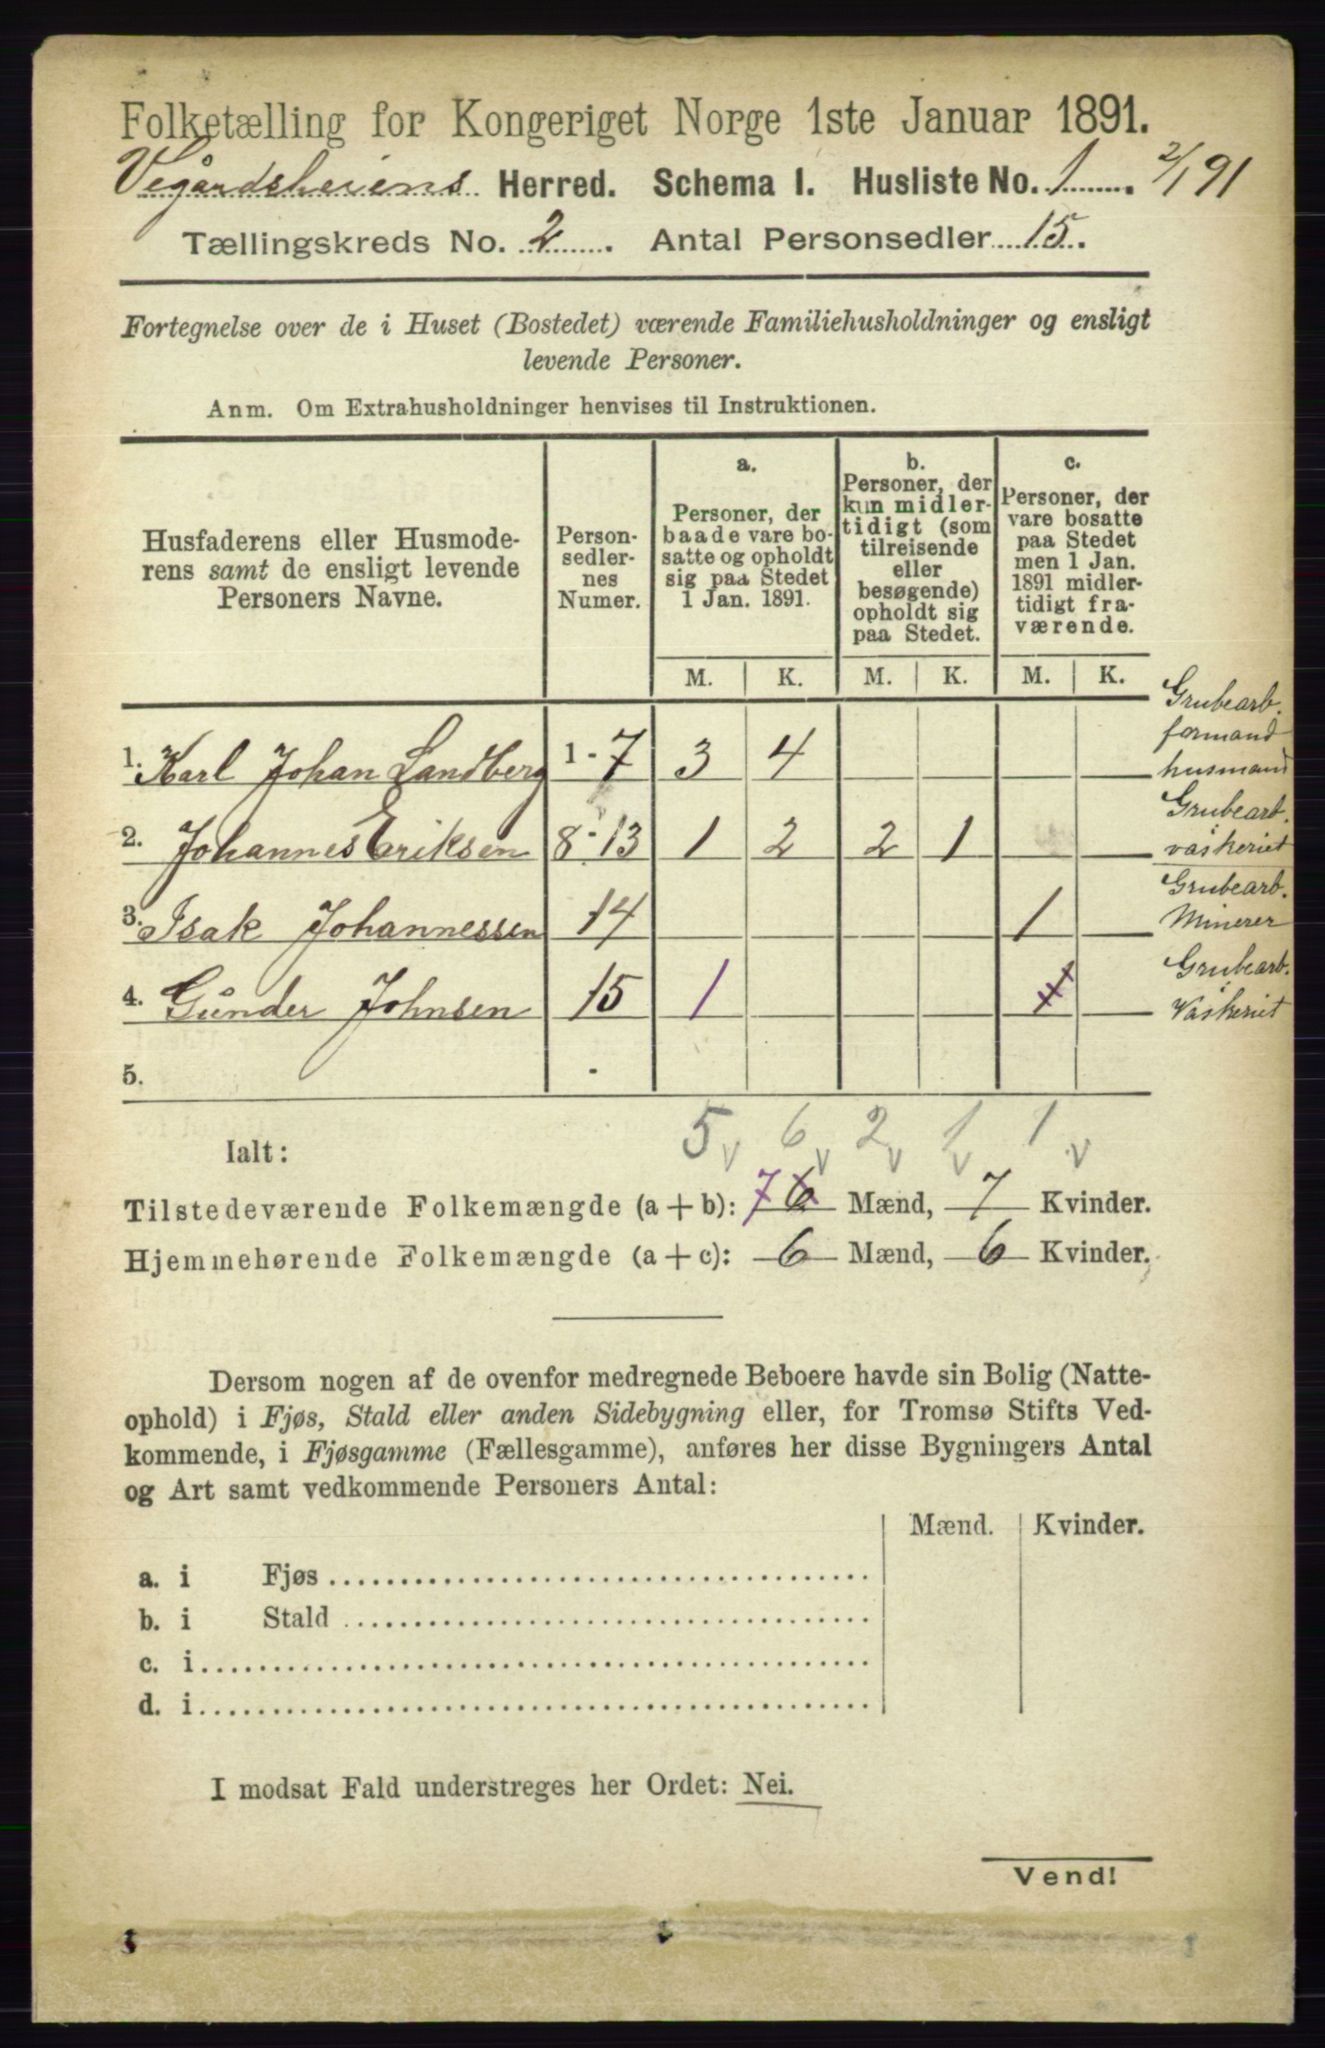 Folketælling for Kongeriget Norge 1ste Januar 1891.
Vegårdsheiens Herred. Schema I. Husliste No. 1. 2/1 91
Tællingskreds No. 2. Antal Personsedler 15.
Fortegnelse over de i Huset (Bostedet) værende Familiehusholdninger og ensligt
levende Personer.
Anm. Om Extrahusholdninger henvises til Instruktionen.
Husfaderens eller Husmode-
rens samt de ensligt levende
Personers Navne.
Person-
sedler-
nes
Numer.
a.
Personer, der
baade vare bo-
satte og opholdt
sig paa Stedet
1 Jan. 1891.
b.
Personer, der
kun midler-
tidigt (som
tilreisende
eller
besøgende)
opholdt sig
paa Stedet.
c.
Personer, der
vare bosatte
paa Stedet
men 1 Jan.
1891 midler-
tidigt fra-
værende.
M. K. M. K. M. K.
1. Karl Johan Landberg 1-7 3 4
Grubearb.
formand
husmand
2. Johannes Eriksen 8-13 1 2 2 1
Grubearb.
våskeriet
3. Isak Johannessen 14 1
Grubearb.
Minerer
4. Gunder Johnsen 15 1 1
Grubearb.
Våskeriet
5.
Ialt: 5 6 2 1 1
v v v v v
Tilstedeværende Folkemængde (a + b): 7 6 Mænd, 7 Kvinder.
Hjemmehørende Folkemængde (a + c): 6 Mænd, 6 Kvinder.
Dersom nogen af de ovenfor medregnede Beboere havde sin Bolig (Natte-
ophold) i Fjøs, Stald eller anden Sidebygning eller, for Tromsø Stifts Ved-
kommende, i Fjøsgamme (Fællesgamme), anføres her disse Bygningers Antal
og Art samt vedkommende Personers Antal:
Mænd. Kvinder.
a. i Fjøs
b. i Stald
c. i
d. i
I modsat Fald understreges her Ordet: Nei.
Vend!